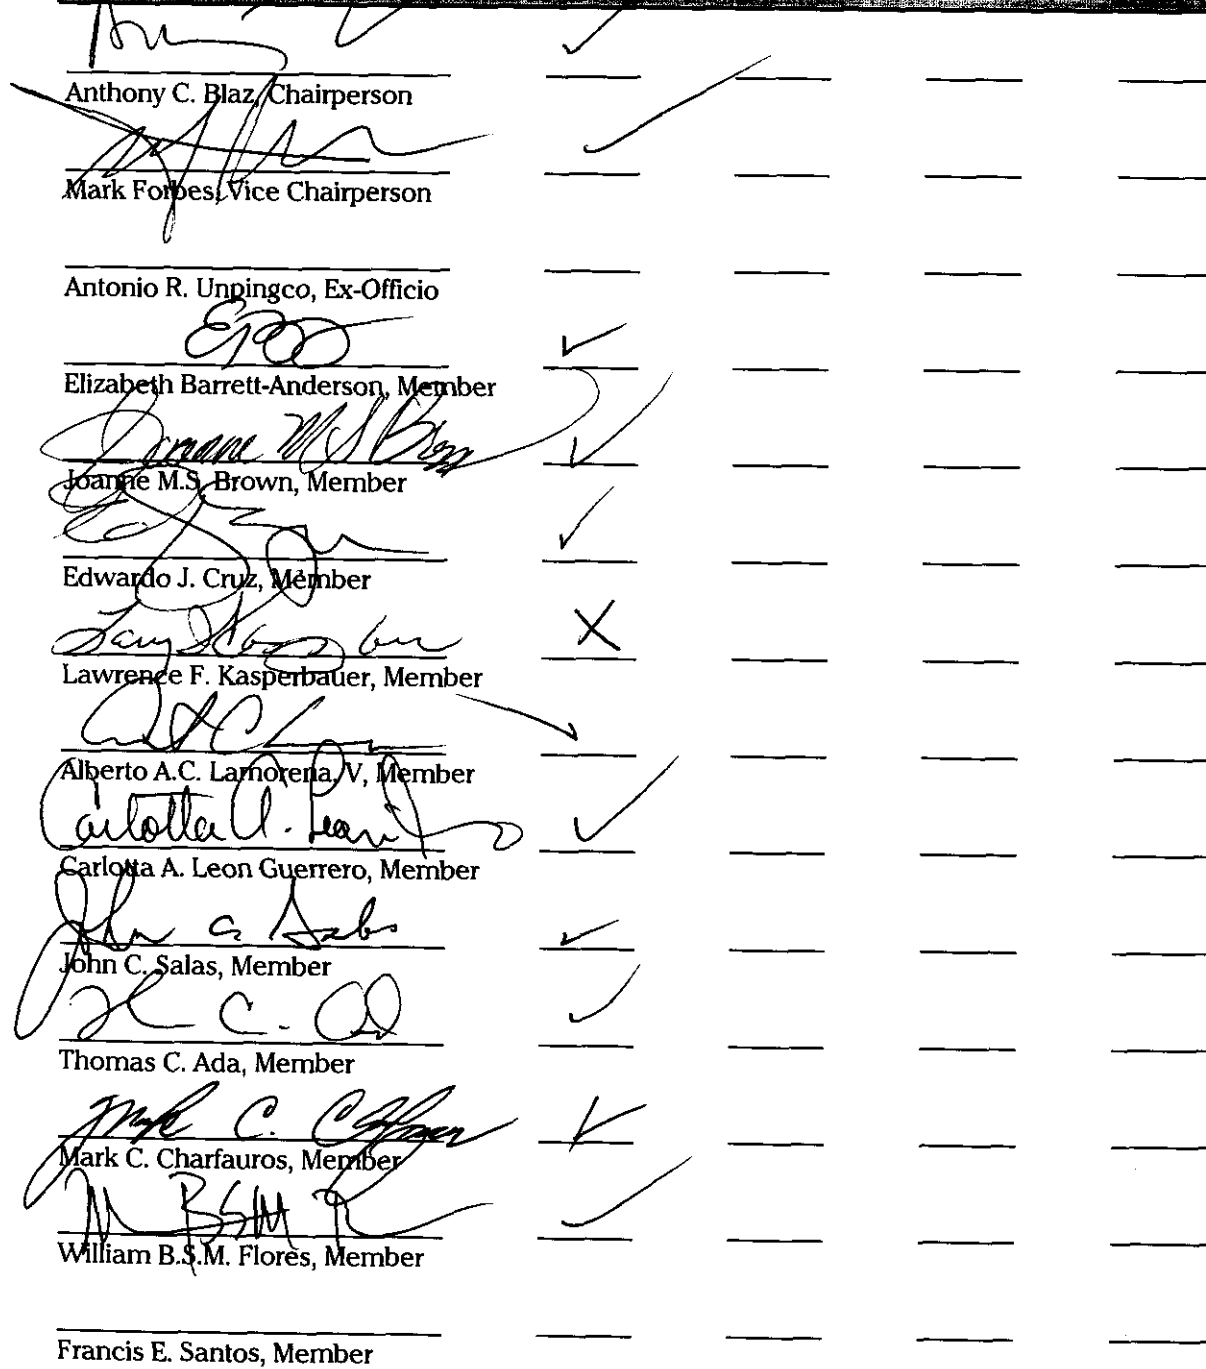 Anthony C. Blaz, Chairperson
Mark Forbes, Vice Chairperson
Antonio R. Unpingco, Ex-Officio
Elizabeth Barrett-Anderson, Member
Joanne M S Brown
Joanne M.S. Brown, Member
Edwardo J. Cruz, Member
Lawrence F. Kasperbauer, Member
Alberto A.C. Lamorena, V, Member
Carlotta A. Leon
Carlotta A. Leon Guerrero, Member
John C. Salas, Member
Thomas C. Ada, Member
Mark C.
Mark C. Charfauros, Member
William B.S.M. Flores, Member
Francis E. Santos, Member